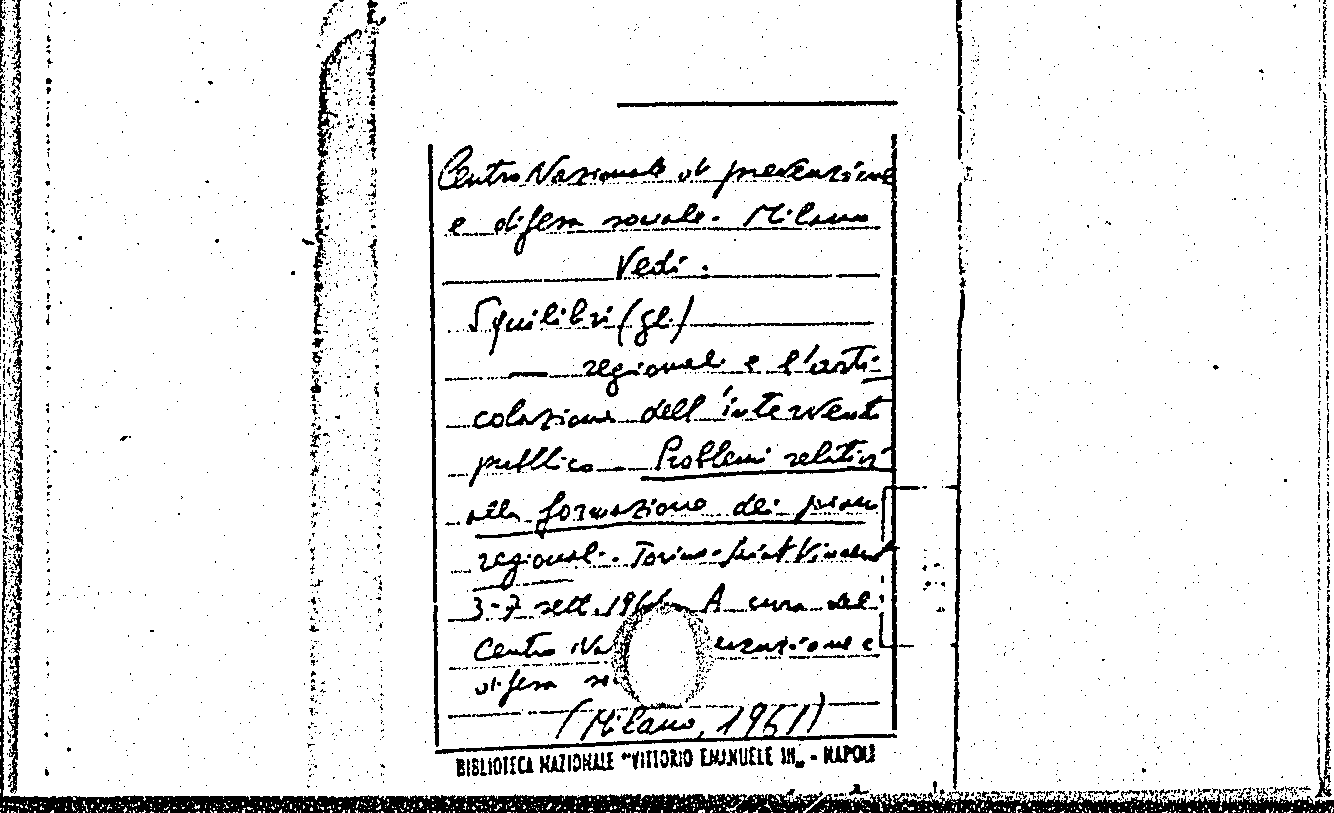 Centro Nazionale di prevenzione
e difesa sociale. Milano
Vedi:
Squilibri (gli)
— regionali e l'arti-
colazione dell'intervento
pubblico. Problemi relativi
alla formazione dei piani
regionali. Torino-Saint Vincent
3-7 sett. A cura del
Centro Na
difesa
(Milano, 1961)
BIBLIOTECA NAZIONALE "VITTORIO EMANUELE III" - NAPOLI